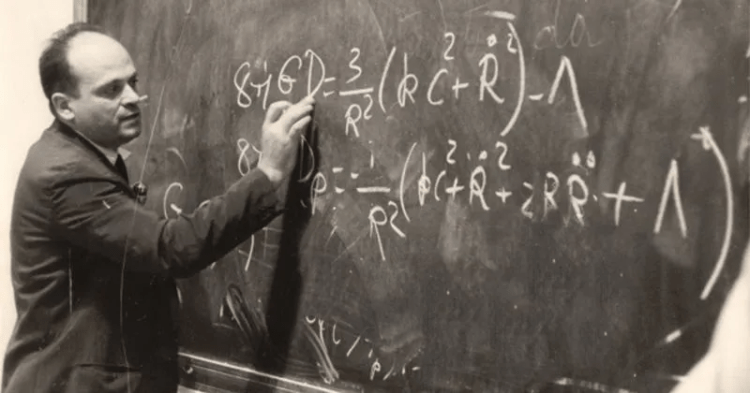 8πGD = 3/R² (kc² + R̈²) - Λ
8π p = -1/R² (kc² + Ṙ² + 2RR̈ + Λ)